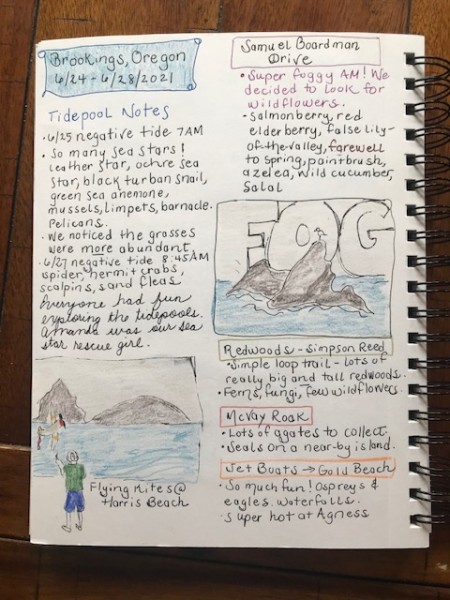 Brookings, Oregon
6/24 - 6/28/2021
Tidepool Notes
• 6/25 negative tide 7AM
• So many sea stars!
leather star, ochre sea
star, black turban snail,
green sea anemone,
mussels, limpets, barnacle.
Pelicans.
• We noticed the grasses
were more abundant.
• 6/27 negative tide 8:45AM
spider, hermit crabs,
scalpins, sand fleas
Everyone had fun
exploring the tidepools.
Amanda was our sea
star rescue girl.
Flying Kites @
Harris Beach
Samuel Boardman
Drive
• Super foggy AM! We
decided to look for
wildflowers.
- Salmonberry, red
elderberry, false lily-
of-the-valley, farewell
to spring, paintbrush,
azelea, wild cucumber,
Salal
FOG
Redwoods - Simpson Reed
• Simple loop trail - lots of
really big and tall redwoods.
• Ferns, fungi, few wildflowers.
McVay Roak
• Lots of agates to collect.
• Seals on a near-by island.
Jet Boats → Gold Beach
• So much fun! Ospreys &
eagles. Waterfalls.
• Super hot at Agness